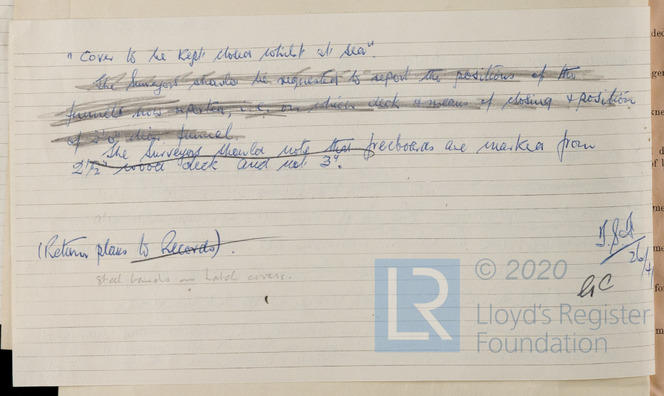 "Cover to be kept closed whilst at sea".
The Surveyors should be requested to report the positions of the
funnels now reported, i.e. on which deck & means of closing & position
of 2'0" diam funnel.
The Surveyors should note that freeboards are marked from
2 1/2" wood deck and not 3".
(Return plans to Records).
26/4
GC
steel bands on hatch covers.
LR
© 2020
Lloyd's Register
Foundation